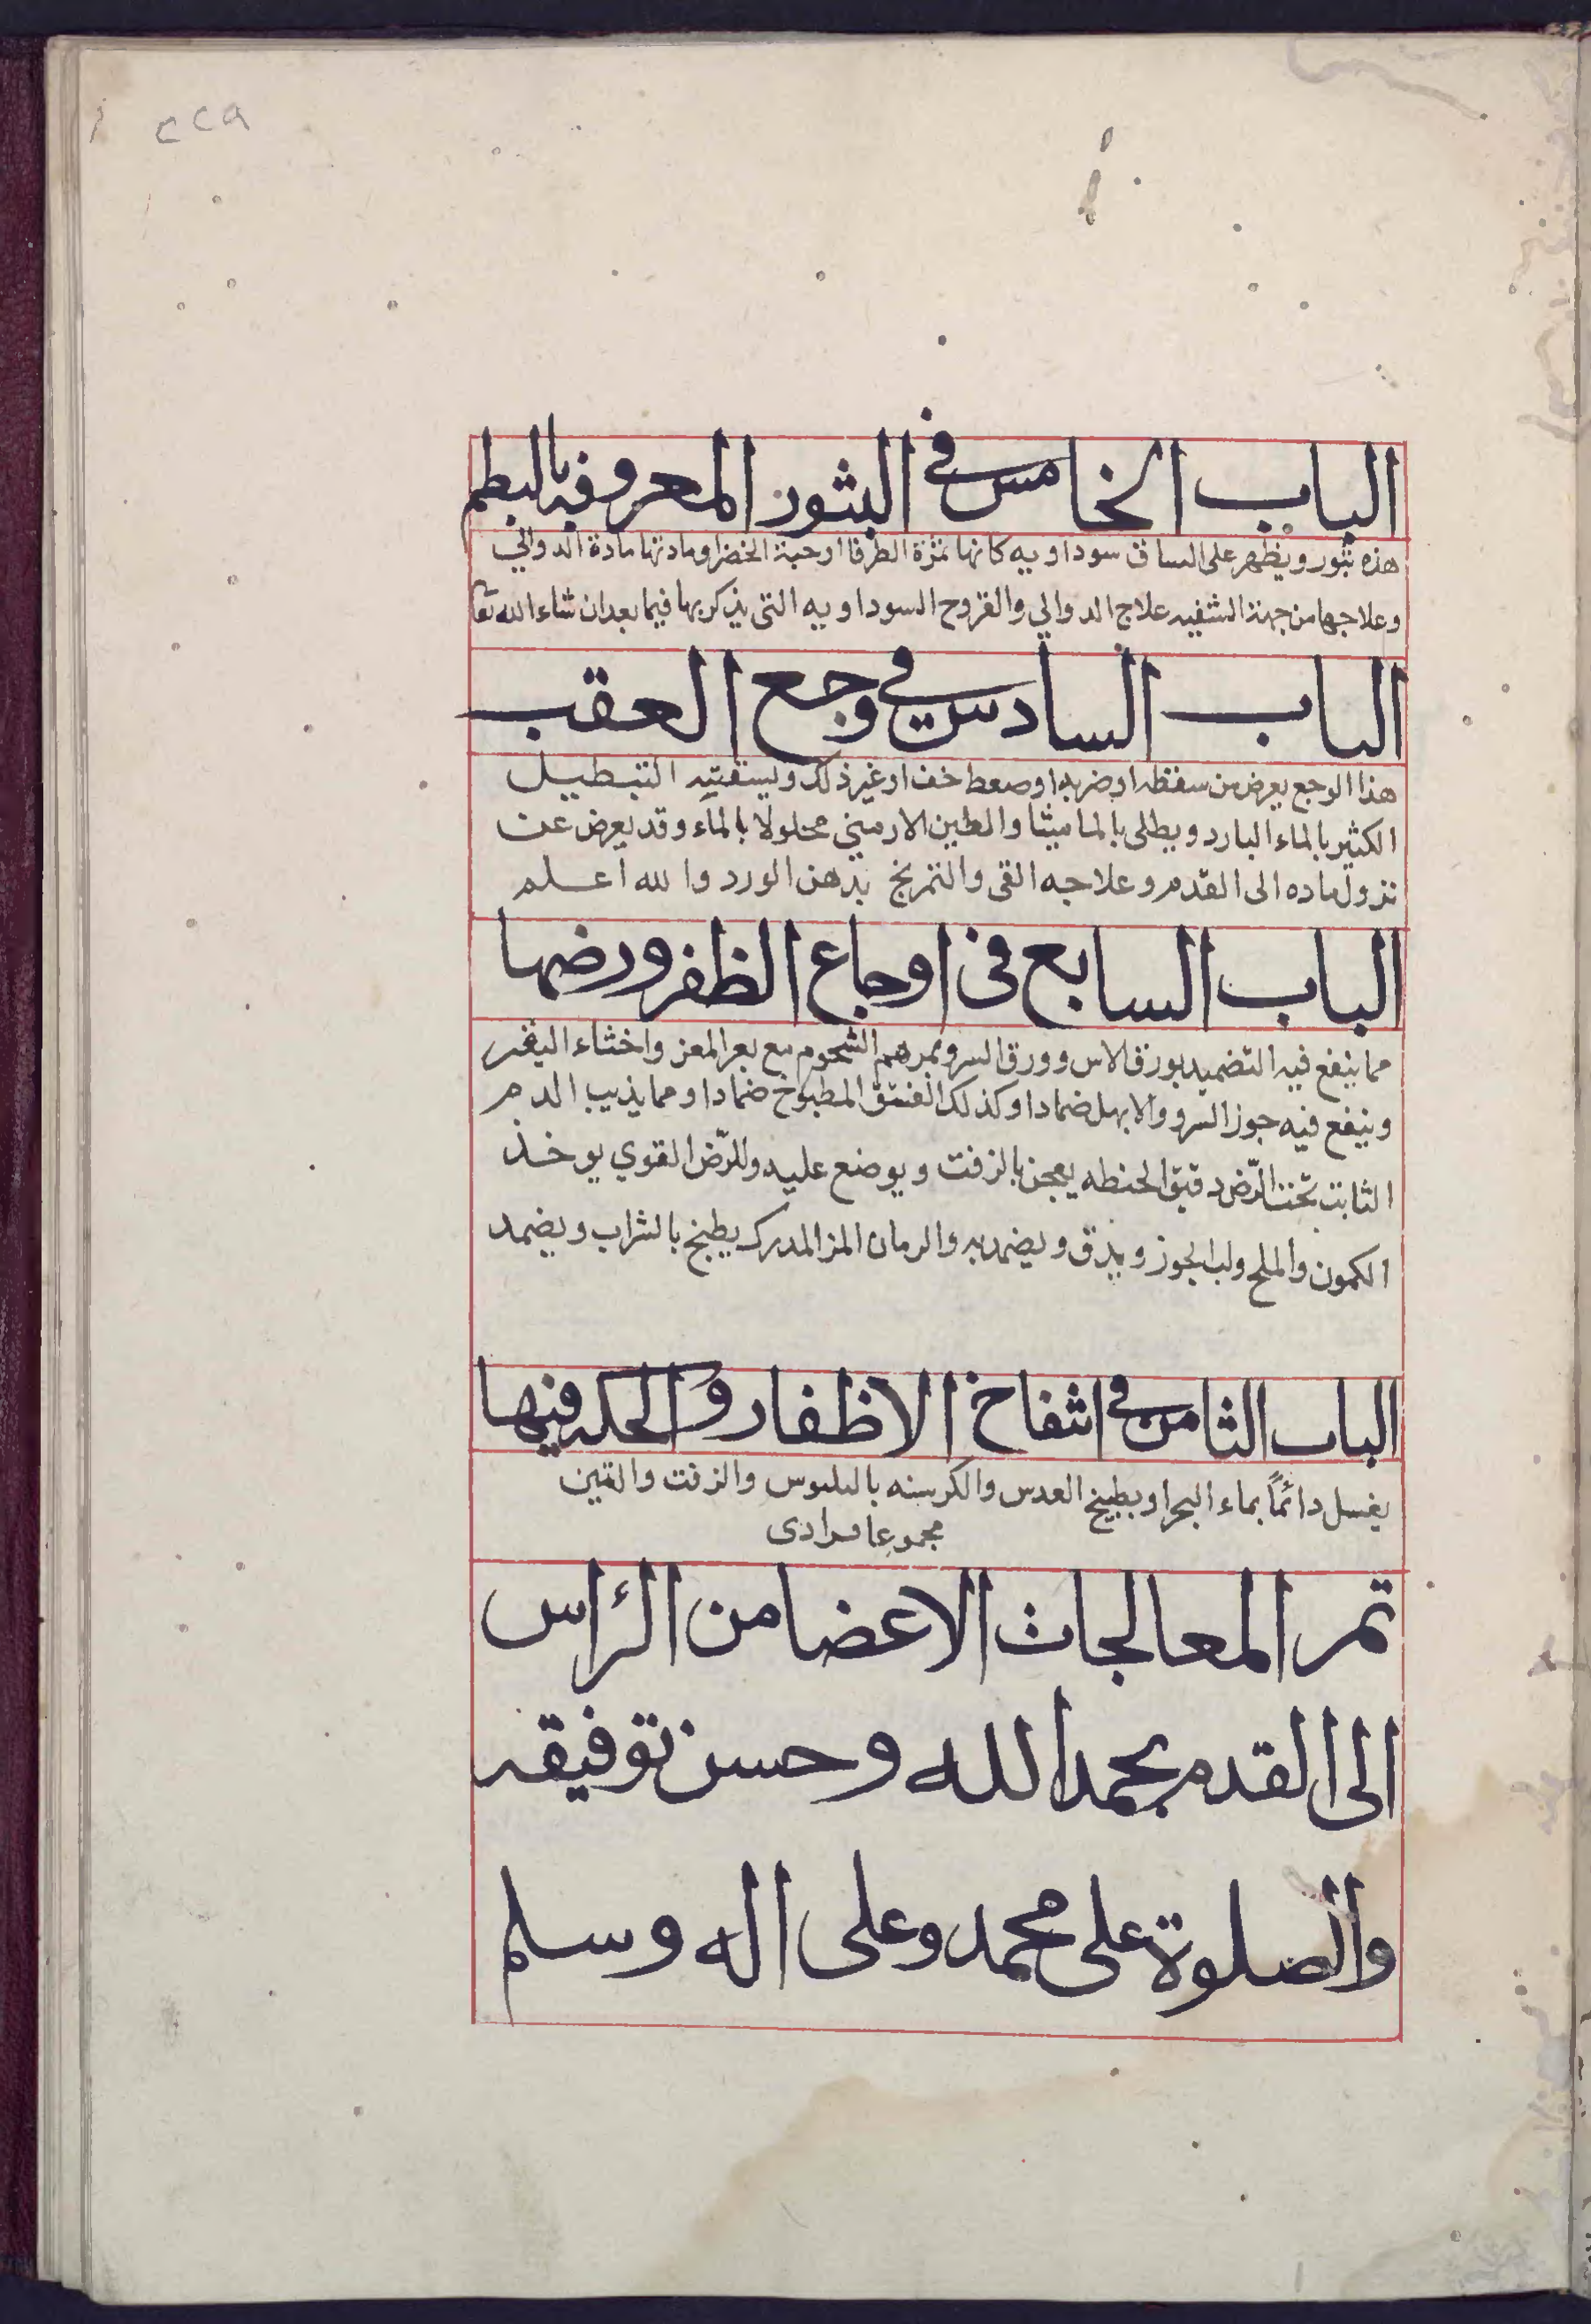 ٢٢٩
الباب الخامس في البثور المعروفه بالبطم
هذه بثور ويظهر على الساق سوداويه كانها ثمرة الطرفا او حبة الخضرا ومادتها مادة الدوالي
وعلاجها من جهة التنقيه علاج الدوالي والقروح السوداويه التي يذكر بها فيما بعد ان شاء الله تعا
الباب السادس في وجع العقب
هذا الوجع يعرض من سقطه او ضربه او ضغط خف او غير ذلك التنطيل
الكثير بالماء البارد ويطلى بالماميثا والطين الارميني محلولا بالماء وقد يعرض عن
نزول ماده الى القدم وعلاجه القى والتمريخ بدهن الورد والله اعلم
الباب السابع في اوجاع الظفر ورضها
مما ينفع فيه التضميد بورق الاس وورق السرو بمرهم الشحوم مع بعر المعز واخثاء البقر
وينفع فيه جوز السرو والابهل ضمادا وكذلك الفستق المطبوخ ضمادا ومما يذيب الدم
الثابت تحت الرّض دقيق الحنطه يعجن بالزفت ويوضع عليه وللرّض القوي يوخذ
الكمون والملح ولب الجوز ويدق ويضمد به والرمان المز المدرك يطبخ بالشراب ويضمد
الباب الثامن في انتفاخ الاظفار والحكه فيها
يغسل دائماً بماء البحر او بطبيخ العدس والكرسنه بالبلبوس والزفت والتين
مجموعا فرادى
تم المعالجات الاعضا من الرأس
الى القدم بحمد الله وحسن توفيقه
والصلوة على محمد وعلى اله وسلم